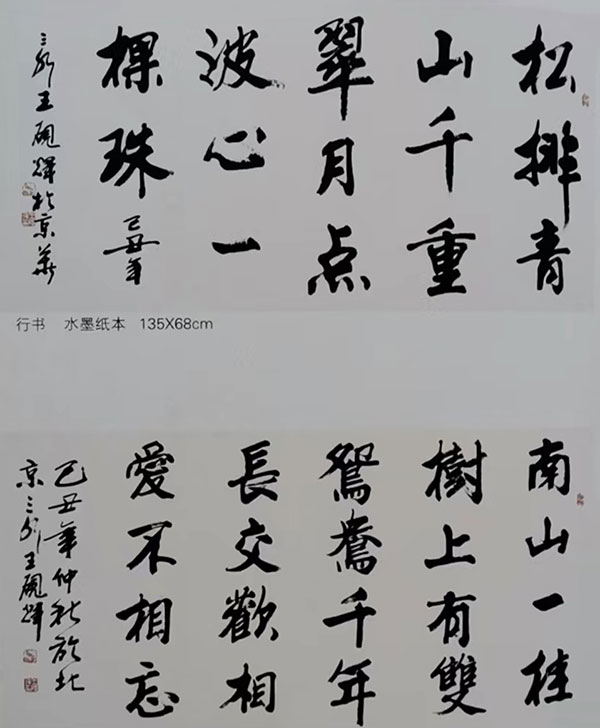 松排青
山千重
翠月点
波心一
棵珠 己丑年
三 王硯輝於京華
行书 水墨纸本 135X68cm
南山一桂
樹上有雙
鴛鴦千年
長交歡相
愛不相忘
己丑年仲秋於北
京三 王硯輝